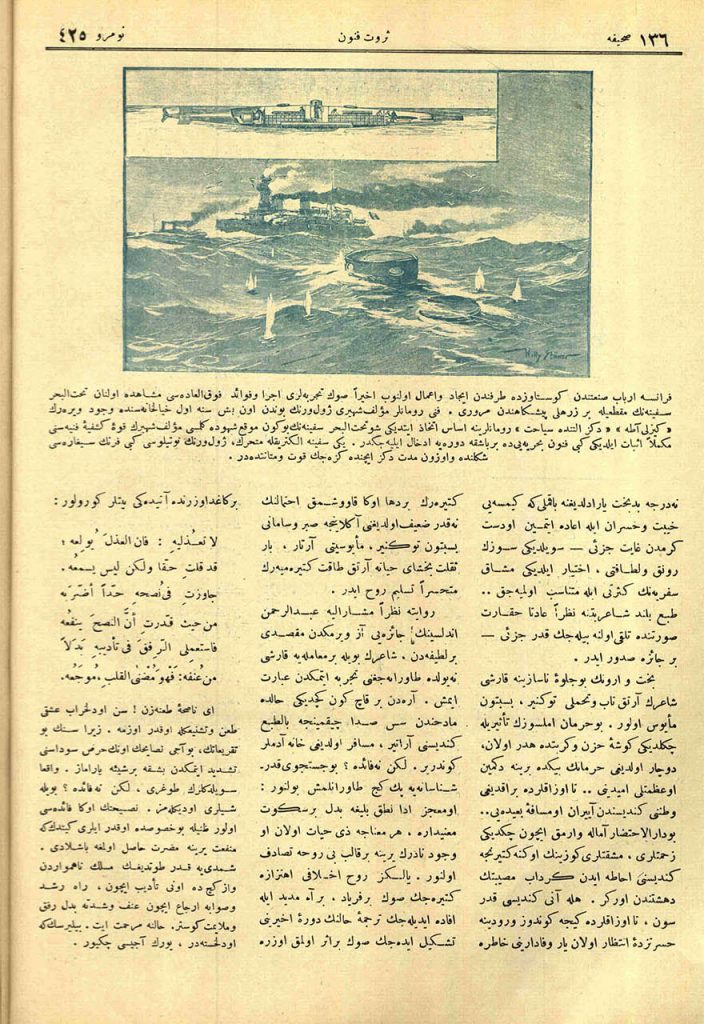 ١٣٦ صحيفه
ثروت فنون
نومرو ٤٢٥
Willy Stöwer
فرانسه ارباب صنعتندن كوستاوزده طرفندن ايجاد واعمال اولنوب اخيراً صوك تجربه‌لرى اجرا وفوائد فوق‌العاده‌سى مشاهده اولنان تحت‌البحر
سفينه‌نك مقطعيله بر زرهلى پيشكاهندن مرورى . فنى رومانلر مؤلف شهيرى ژول‌ورنك بوندن اون بش سنه اول خيالخانه‌سنده وجود ويره‌رك
« كيزلى آطه » « دكز التنده سياحت » رومانلرينه اساس اتخاذ ايتديكى شو تحت‌البحر سفينه‌نك بوكون موقع شهوده كلمسى مؤلف شهيرك قوۀ كشفيۀ فنيه‌سنى
مكملاً اثبات ايلديكى كبى فنون بحريه‌يى‌ده برباشقه دوره‌يه ادخال ايليه‌جكدر . يكى سفينه الكتريقله متحرك، ژول‌ورنك نوتيلوسى كبى فرنك سيغاره‌سى
شكلنده واوزون مدت دكز ايچنده كزه‌جك قوت ومتانتده‌در .
نه‌درجه بدبخت يارادلديغنه باقملى كه كيمسه‌يى
خيبت وخسران ايله اعاده ايتمين اودست
كرمدن غايت جزئى — سويلديكى سوزك
رونق ولطافتى ، اختيار ايلديكى مشاق
سفريه‌نك كثرتى ايله متناسب اوليه‌جق ..
طبع بلند شاعريتنه نظراً عادتا حقارت
صورتنده تلقى اولنه بيله‌جك قدر جزئى —
بر جائزه صدور ايدر .
بخت و ارونك بوجلوۀ ناسازينه قارشى
شاعرك آرتق تاب وتحملى توكنير ، بسبتون
مأيوس اولور . بوحرمان املسوزك تأثيريله
چكلديكى كوشۀ حزن وكربنده هدر اولان،
دوچار اولديغى حرمانك بيكده برينه دكمين
اوعظمتلى اميدينى .. تا اوزاقلرده براقديغى
وطنى كنديسندن آييران اومسافۀ بعيده‌يى..
بودارالاحتضار آماله وارمق ايچون چكديكى
زحمتلرى ، مشقتلرى كوزينك اوكنه كتيرنجه
كنديسنى احاطه ايدن كرداب مصيبتك
دهشتندن اوركر . هله آنى كنديسى قدر
سون ، تا اوزاقلرده كيجه كوندوز ورودينه
حسرتزدۀ انتظار اولان يار وفادارينى خاطره
كتيره‌رك بردها اوكا قاووشمق احتمالنك
نه‌قدر ضعيف اولديغنى آكلاينجه صبر وسامانى
بسبتون توكنير ، مأيوسيتى آرتار ، بار
ثقلت بخشاى حياته آرتق طاقت كتيره‌ميه‌رك
متحسراً تسليم روح ايدر .
روايته نظراً مشاراليه عبدالرحمن
اندلسينك جائزه‌يى آز ويرمكدن مقصدى
برلطيفه‌دن ، شاعرك بويله برمعامله‌يه قارشى
نه‌يولده طاورانه‌جغنى تجربه ايتمكدن عبارت
ايمش . آره‌دن بر قاچ كون كچديكى حالده
مادحندن سس صدا چيقمينجه بالطبع
كنديسنى آراتير ، مسافر اولديغى خانه آدملر
كوندرير. لكن نه‌فائده ؟ بوجستجوى قدر-
شناسانه‌يه پك كچ طاورانلمش بولنور :
اومعجز ادا نطق بليغه بدل برسكوت
معنيداره ، هر معناجه ذى حيات اولان او
وجود نادرك يرينه برقالب بى روحه تصادف
اولنور . يالكز روح اخلافى اهتزازه
كتيره‌جك صوك برفرياد ، بر آه مديد ايله
افاده ايديله‌جك ترجمۀ حالنك دورۀ اخيرينى
تشكيل ايده‌جك صوك براثر اولمق اوزره
بركاغد اوزرنده آتيده‌كى بيتلر كورولور :
لا تعذليه : فان العذل يولعه ؛
قد قلت حقا ولكن ليس يسمعه .
جاوزت فى نصحه حداً أضرّ به
من حيث قدرت أن النصح ينفعه
فاستعملى الرفق فى تأديبه بدلاً
من عنفه: فهو مضنى القلب موجعه.
اى ناصحۀ طعنه‌زن ! سن اودلخراب عشق
طعن وتشنيعكله اوقدر اوزمه . زيرا سنك بو
تقريعاتك، بوآجى نصايحك اونك حرص سوداسنى
تشديد ايتمكدن بشقه برشيئه ياراماز . واقعا
سويلدكلرك طوغرى ، لكن نه‌فائده ؟ بويله
شيلرى اوديكله‌مز . نصيحتك اوكا فائده‌سى
اولور ظنيله بوخصوصده اوقدر ايلرى كيتدك‌كه
منفعت يرينه مضرت حاصل اولغه باشلادى .
شمدى‌يه قدر طوتديغك مسلك ناهمواردن
وازكچ ده اونى تأديب ايچون ، راه رشد
وصوابه ارجاع ايچون عنف وشدته بدل رفق
وملايمت كوستر. حالنه مرحمت ايت . بيليرسك‌كه
اودلخسته‌در ، يورك آجيسى چكيور .